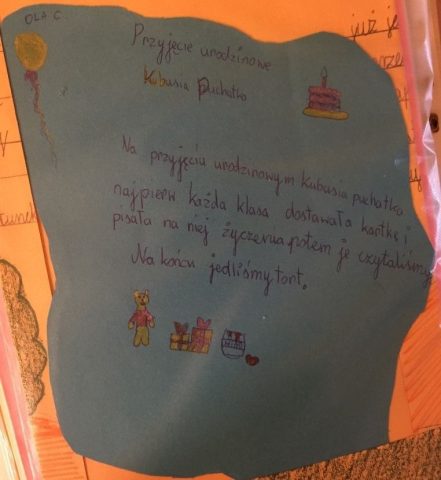 OLA C.
Przyjęcie urodzinowe
Kubusia Puchatka
Na przyjęciu urodzinowym Kubusia puchatka
najpierw każda klasa dostawała kartkę i
pisała na niej życzenia potem je czytaliśmy.
Na końcu jedliśmy tort.
już je